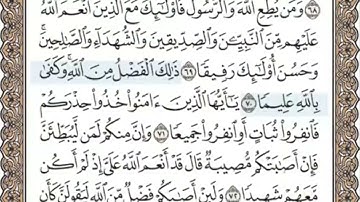 ﴿٦٨﴾ وَمَن يُطِعِ اللَّهَ وَالرَّسُولَ فَأُولَٰئِكَ مَعَ الَّذِينَ أَنْعَمَ اللَّهُ
عَلَيْهِم مِّنَ النَّبِيِّينَ وَالصِّدِّيقِينَ وَالشُّهَدَاءِ وَالصَّالِحِينَ ۚ
وَحَسُنَ أُولَٰئِكَ رَفِيقًا ﴿٦٩﴾ ذَٰلِكَ الْفَضْلُ مِنَ اللَّهِ ۚ وَكَفَىٰ
بِاللَّهِ عَلِيمًا ﴿٧٠﴾ يَا أَيُّهَا الَّذِينَ آمَنُوا خُذُوا حِذْرَكُمْ
فَانفِرُوا ثُبَاتٍ أَوِ انفِرُوا جَمِيعًا ﴿٧١﴾ وَإِنَّ مِنكُمْ لَمَن لَّيُبَطِّئَنَّ
فَإِنْ أَصَابَتْكُم مُّصِيبَةٌ قَالَ قَدْ أَنْعَمَ اللَّهُ عَلَيَّ إِذْ لَمْ أَكُن
مَّعَهُمْ شَهِيدًا ﴿٧٢﴾ وَلَئِنْ أَصَابَكُمْ فَضْلٌ مِّنَ اللَّهِ لَيَقُولَنَّ كَأَن